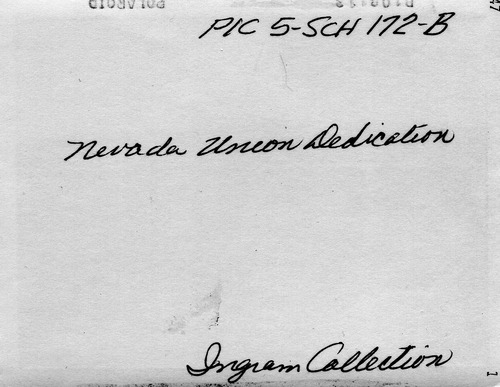 POLAROID
PIC 5-SCH 172-B
Nevada Union Dedication
Ingram Collection